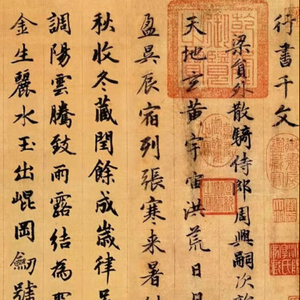 行書千文
梁貟外散騎侍郎周興嗣次
天地玄黄宇宙洪荒日月
盈昃辰宿列張寒来暑
秋收冬藏閏餘成歲律
調陽雲騰致雨露結為
金生麗水玉出崐岡劒號